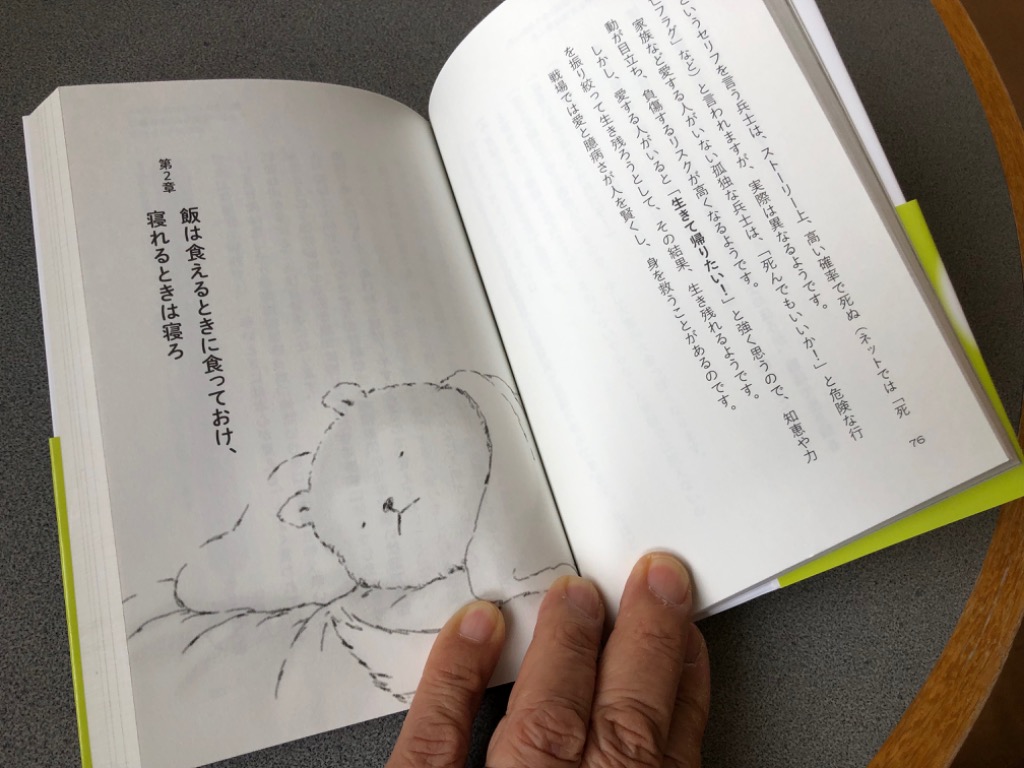 というセリフを言う兵士は、ストーリー上、高い確率で死ぬ(ネットでは「死
亡フラグ」など)と言われますが、実際は異なるようです。
家族など愛する人がいない孤独な兵士は、「死んでもいいか!」と危険な行
動が目立ち、負傷するリスクが高くなるようです。
しかし、愛する人がいると「生きて帰りたい!」と強く思うので、知恵や力
を振り絞って生き残ろうとして、その結果、生き残れるようです。
戦場では愛と臆病さが人を賢くし、身を救うことがあるのです。
76
第2章
飯は食えるときに食っておけ、
寝れるときは寝ろ